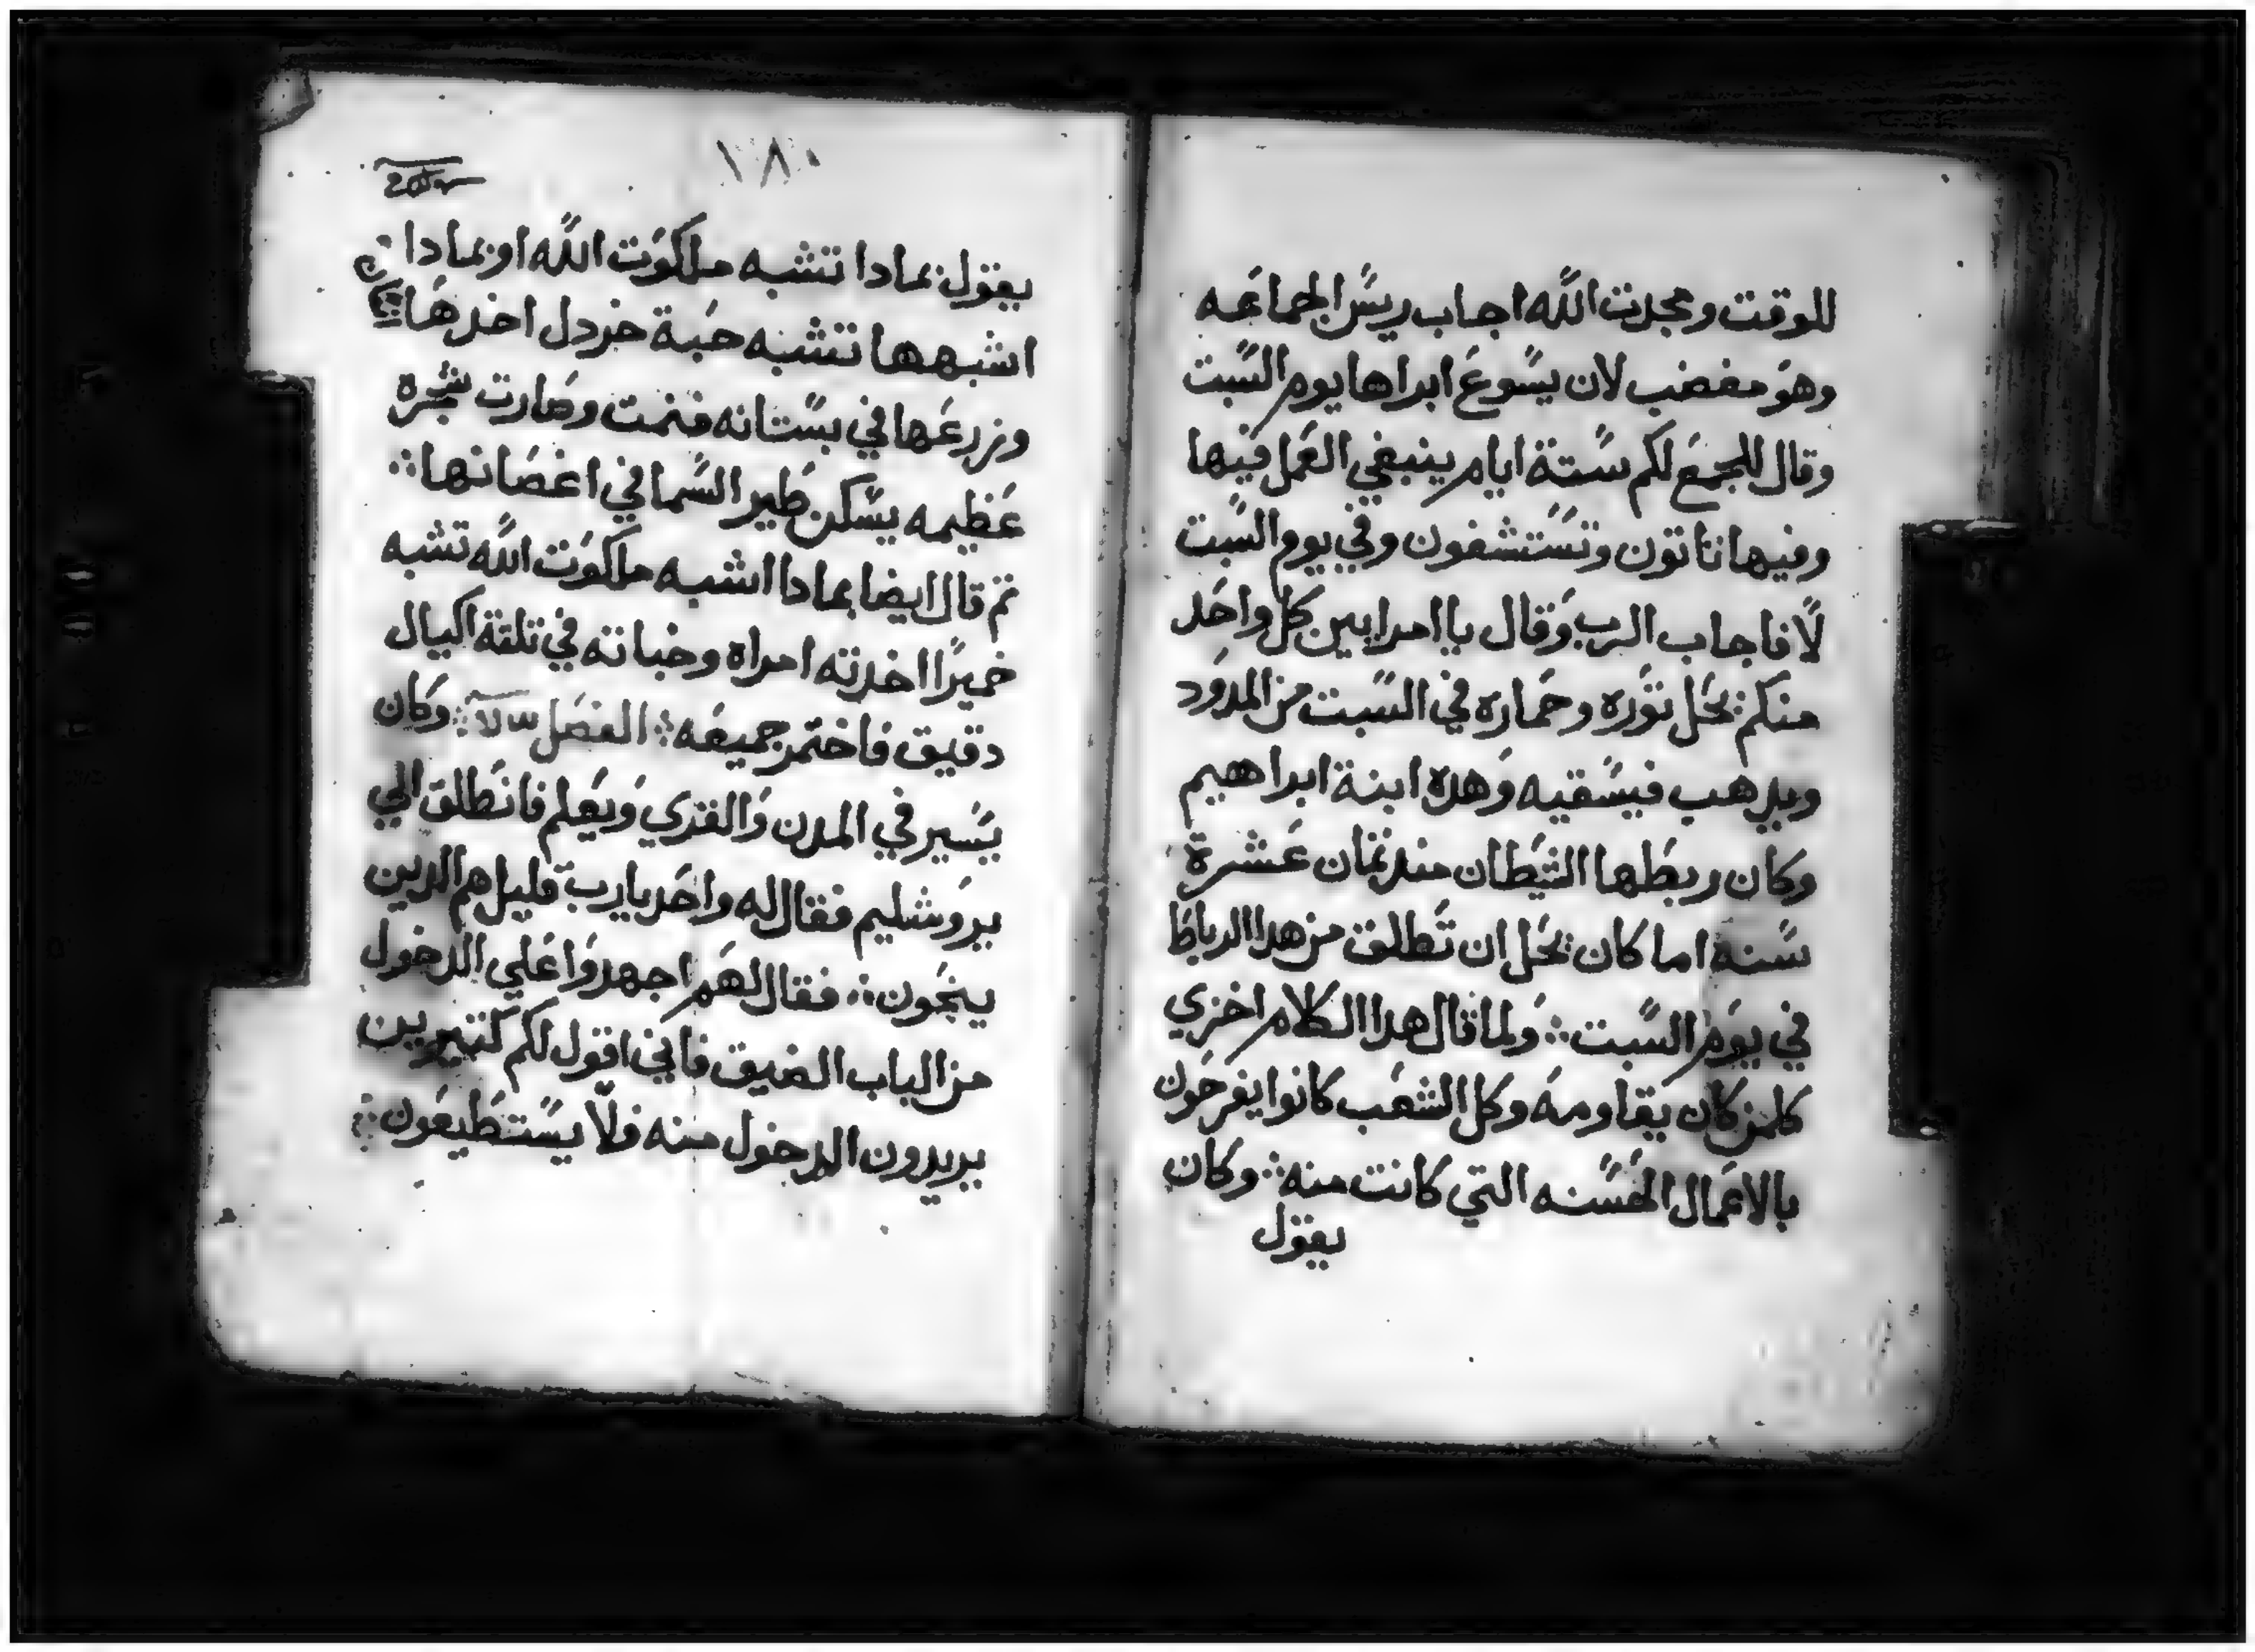 للوقت ومجدت الله اجاب ريس الجماعه
وهو مغضب لان يسوع ابراها يوم السبت
وقال للجمع لكم ستة ايام ينبغي العمل فيها
وفيها تاتون وتستشفون وفي يوم السبت
لا فاجاب الرب وقال يا امرايين كل واحد
منكم يحل توره وحماره في السبت من المدود
ويدهب فيسقيه وهده ابنة ابراهيم
وكان ربطها الشيطان مند تمان عشرة
سنه اما كان يحل ان تطلق من هدا الرباط
في يوم السبت ولما قال هدا الكلام اخزي
كلمن كان يقاومه وكل الشعب كانوا يفرحون
بالاعمال الحسنه التي كانت منه وكان
يقول
١٨٠
يقول بمادا تشبه ملكوت الله او بمادا
اشبهها تشبه حبة خردل اخدها
وزرعها في بستانه فنمت وصارت شجره
عظيمه يسكن طير السما في اغصانها
تم قال ايضا بمادا اشبه ملكوت الله تشبه
خميرا اخدته امراه وخباته في تلتة اكيال
دقيق فاختمر جميعه الفصل وكان
يسير في المدن والقري ويعلم فانطلق الي
يروشليم فقال له واحد يارب قليل هم الدين
ينجون فقال لهم اجهدوا علي الدخول
من الباب الضيق فاني اقول لكم كتيرين
يريدون الدخول منه فلا يستطيعون